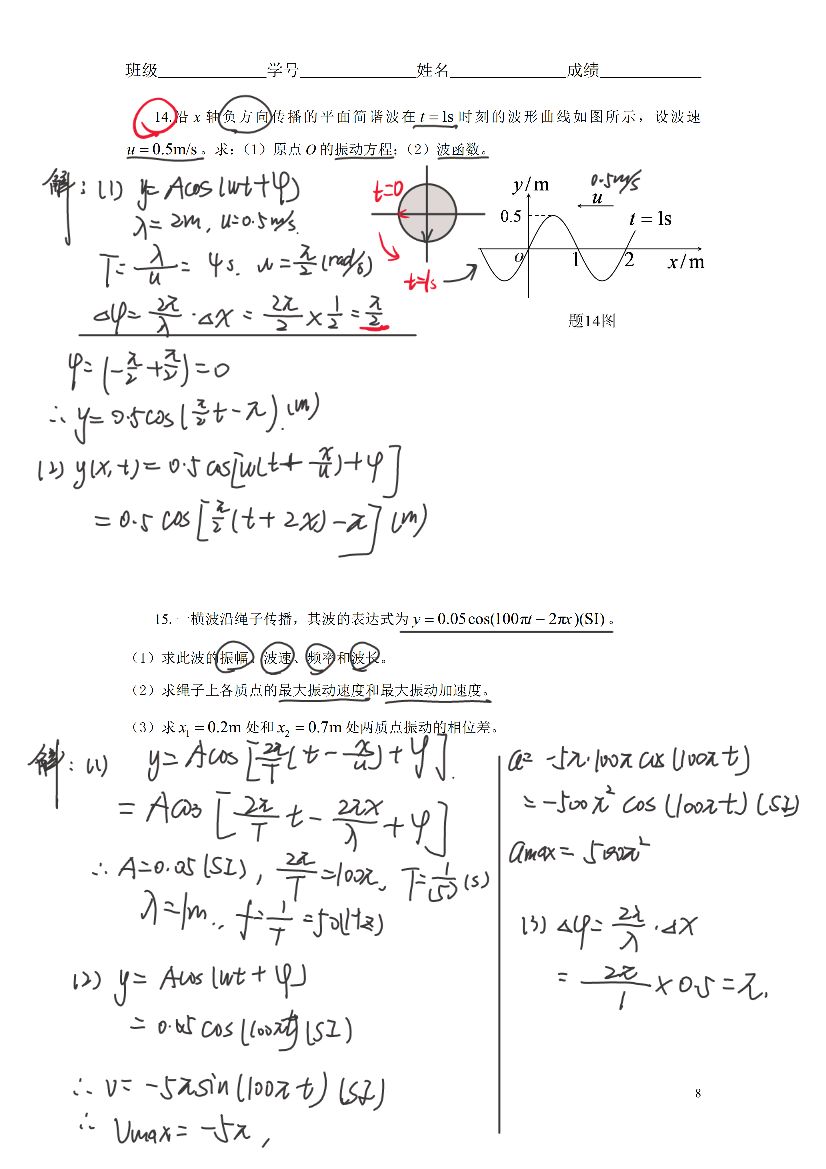 班级 学号 姓名 成绩
14.沿 x 轴负方向传播的平面简谐波在 t = 1s 时刻的波形曲线如图所示，设波速
u = 0.5m/s 。求：（1）原点 O 的振动方程；（2）波函数。
解：(1) y=Acos(ωt+φ)
λ=2m, u=0.5m/s.
T=λ/u= 4s. ω=π/2(rad/s)
Δφ=2π/λ·Δx=2π/2×1/2=π/2
t=0
t=1s
y/m
0.5m/s
u
0.5
t = 1s
o 1 2 x/m
题14图
φ=(-π/2+π/2)=0
∴y=0.5cos(π/2t-π).(m)
(2) y(x,t)=0.5cos[ω(t+x/u)+φ]
=0.5cos[π/2(t+2x)-π](m)
15. 一横波沿绳子传播，其波的表达式为 y = 0.05cos(100πt − 2πx)(SI) 。
（1）求此波的振幅、波速、频率和波长。
（2）求绳子上各质点的最大振动速度和最大振动加速度。
（3）求 x₁ = 0.2m 处和 x₂ = 0.7m 处两质点振动的相位差。
解：(1) y=Acos[2π/T(t-x/u)+φ].
=Acos[2π/T t-2πx/λ+φ]
∴A=0.05(SI), 2π/T=100π, T=1/50(s)
λ=1m., f=1/T=50(Hz)
(2) y=Acos(ωt+φ)
=0.05cos(100πt)(SI)
∴v=-5πsin(100πt)(SI)
∴ Vmax=-5π,
a=-5π·100πcos(100πt)
=-500π²cos(100πt)(SI)
amax=500π²
(3) Δφ=2π/λ·Δx
=2π/1×0.5=π.
8